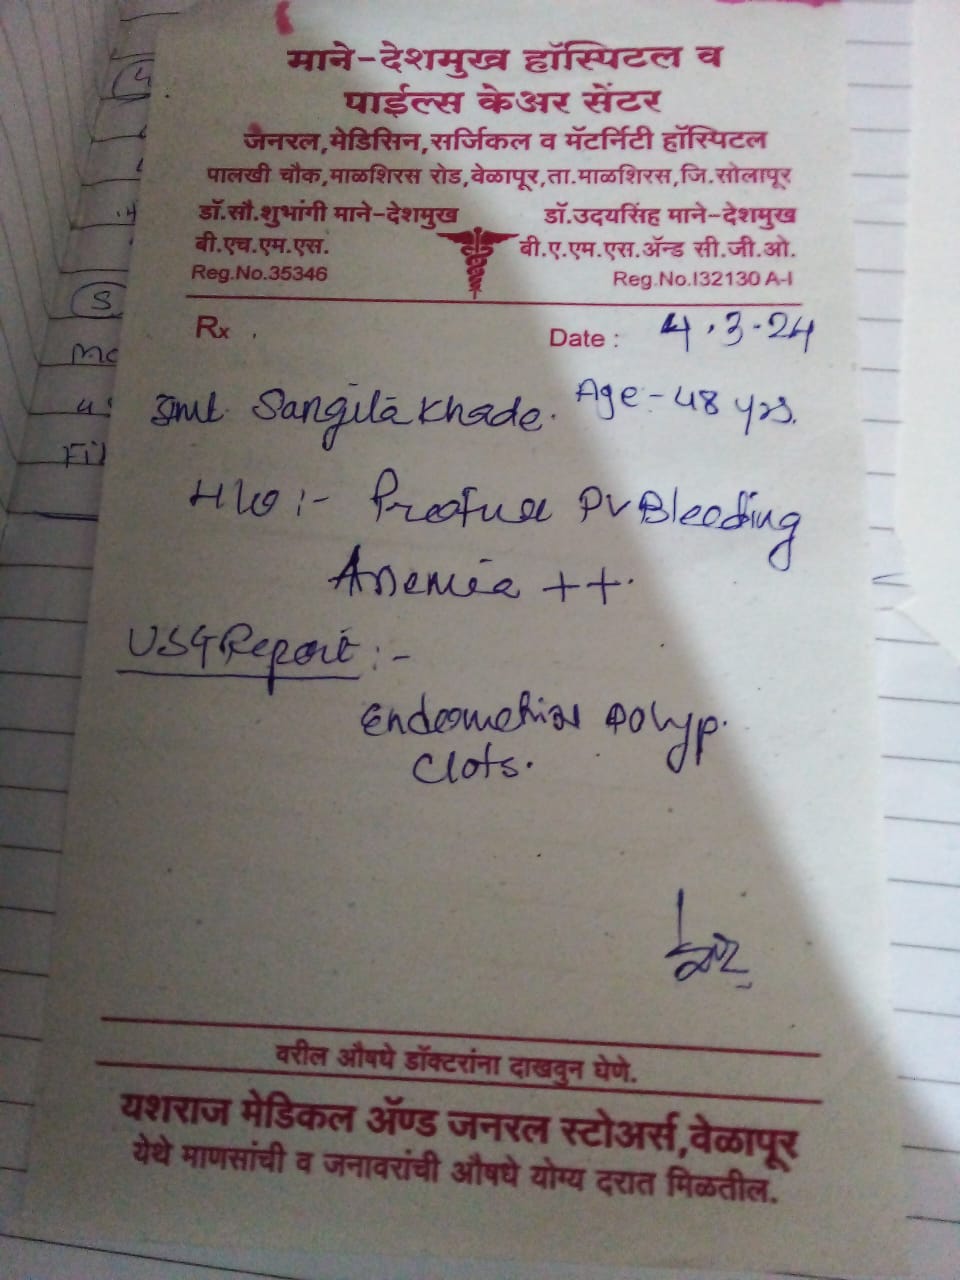 माने-देशमुख हॉस्पिटल व
पाईल्स केअर सेंटर
जनरल,मेडिसिन,सर्जिकल व मॅटर्निटी हॉस्पिटल
पालखी चौक,माळशिरस रोड,वेळापूर,ता.माळशिरस,जि.सोलापूर
डॉ.सौ.शुभांगी माने-देशमुख डॉ.उदयसिंह माने-देशमुख
बी.एच.एम.एस. बी.ए.एम.एस.ॲन्ड सी.जी.ओ.
Reg.No.35346 Reg.No.I32130 A-I
Rx . Date : 4.3.24
Smt. Sangita Khade. Age:- 48 yrs.
H/o :- Profuse PV Bleeding
Anemia ++.
USG Report :-
Endometrial polyp.
Clots.
वरील औषधे डॉक्टरांना दाखवुन घेणे.
यशराज मेडिकल ॲण्ड जनरल स्टोअर्स,वेळापूर
येथे माणसांची व जनावरांची औषधे योग्य दरात मिळतील.